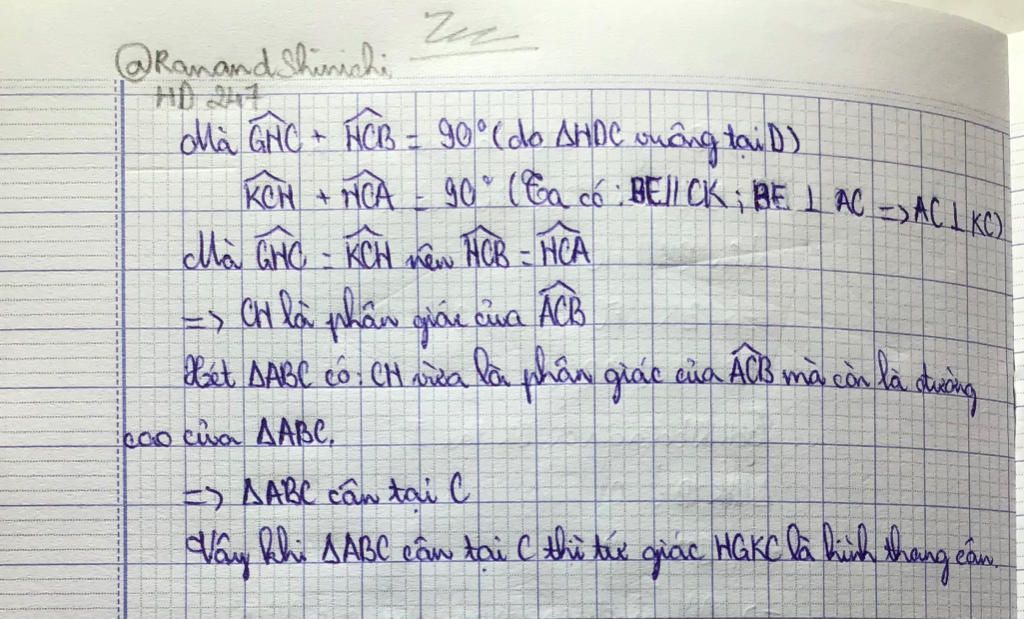 Zzz
@RanandShinichi
HD 247
Mà \widehat{GHC} + \widehat{HCB} = 90° (do ΔHDC vuông tại D)
\widehat{KCH} + \widehat{HCA} = 90° (Ta có: BE // CK; BE ⊥ AC => AC ⊥ KC)
Mà \widehat{GHC} = \widehat{KCH} nên \widehat{HCB} = \widehat{HCA}
=> CH là phân giác của \widehat{ACB}
Xét ΔABC có: CH vừa là phân giác của \widehat{ACB} mà còn là đường
cao của ΔABC.
=> ΔABC cân tại C
Vậy khi ΔABC cân tại C thì tứ giác HGKC là hình thang cân.